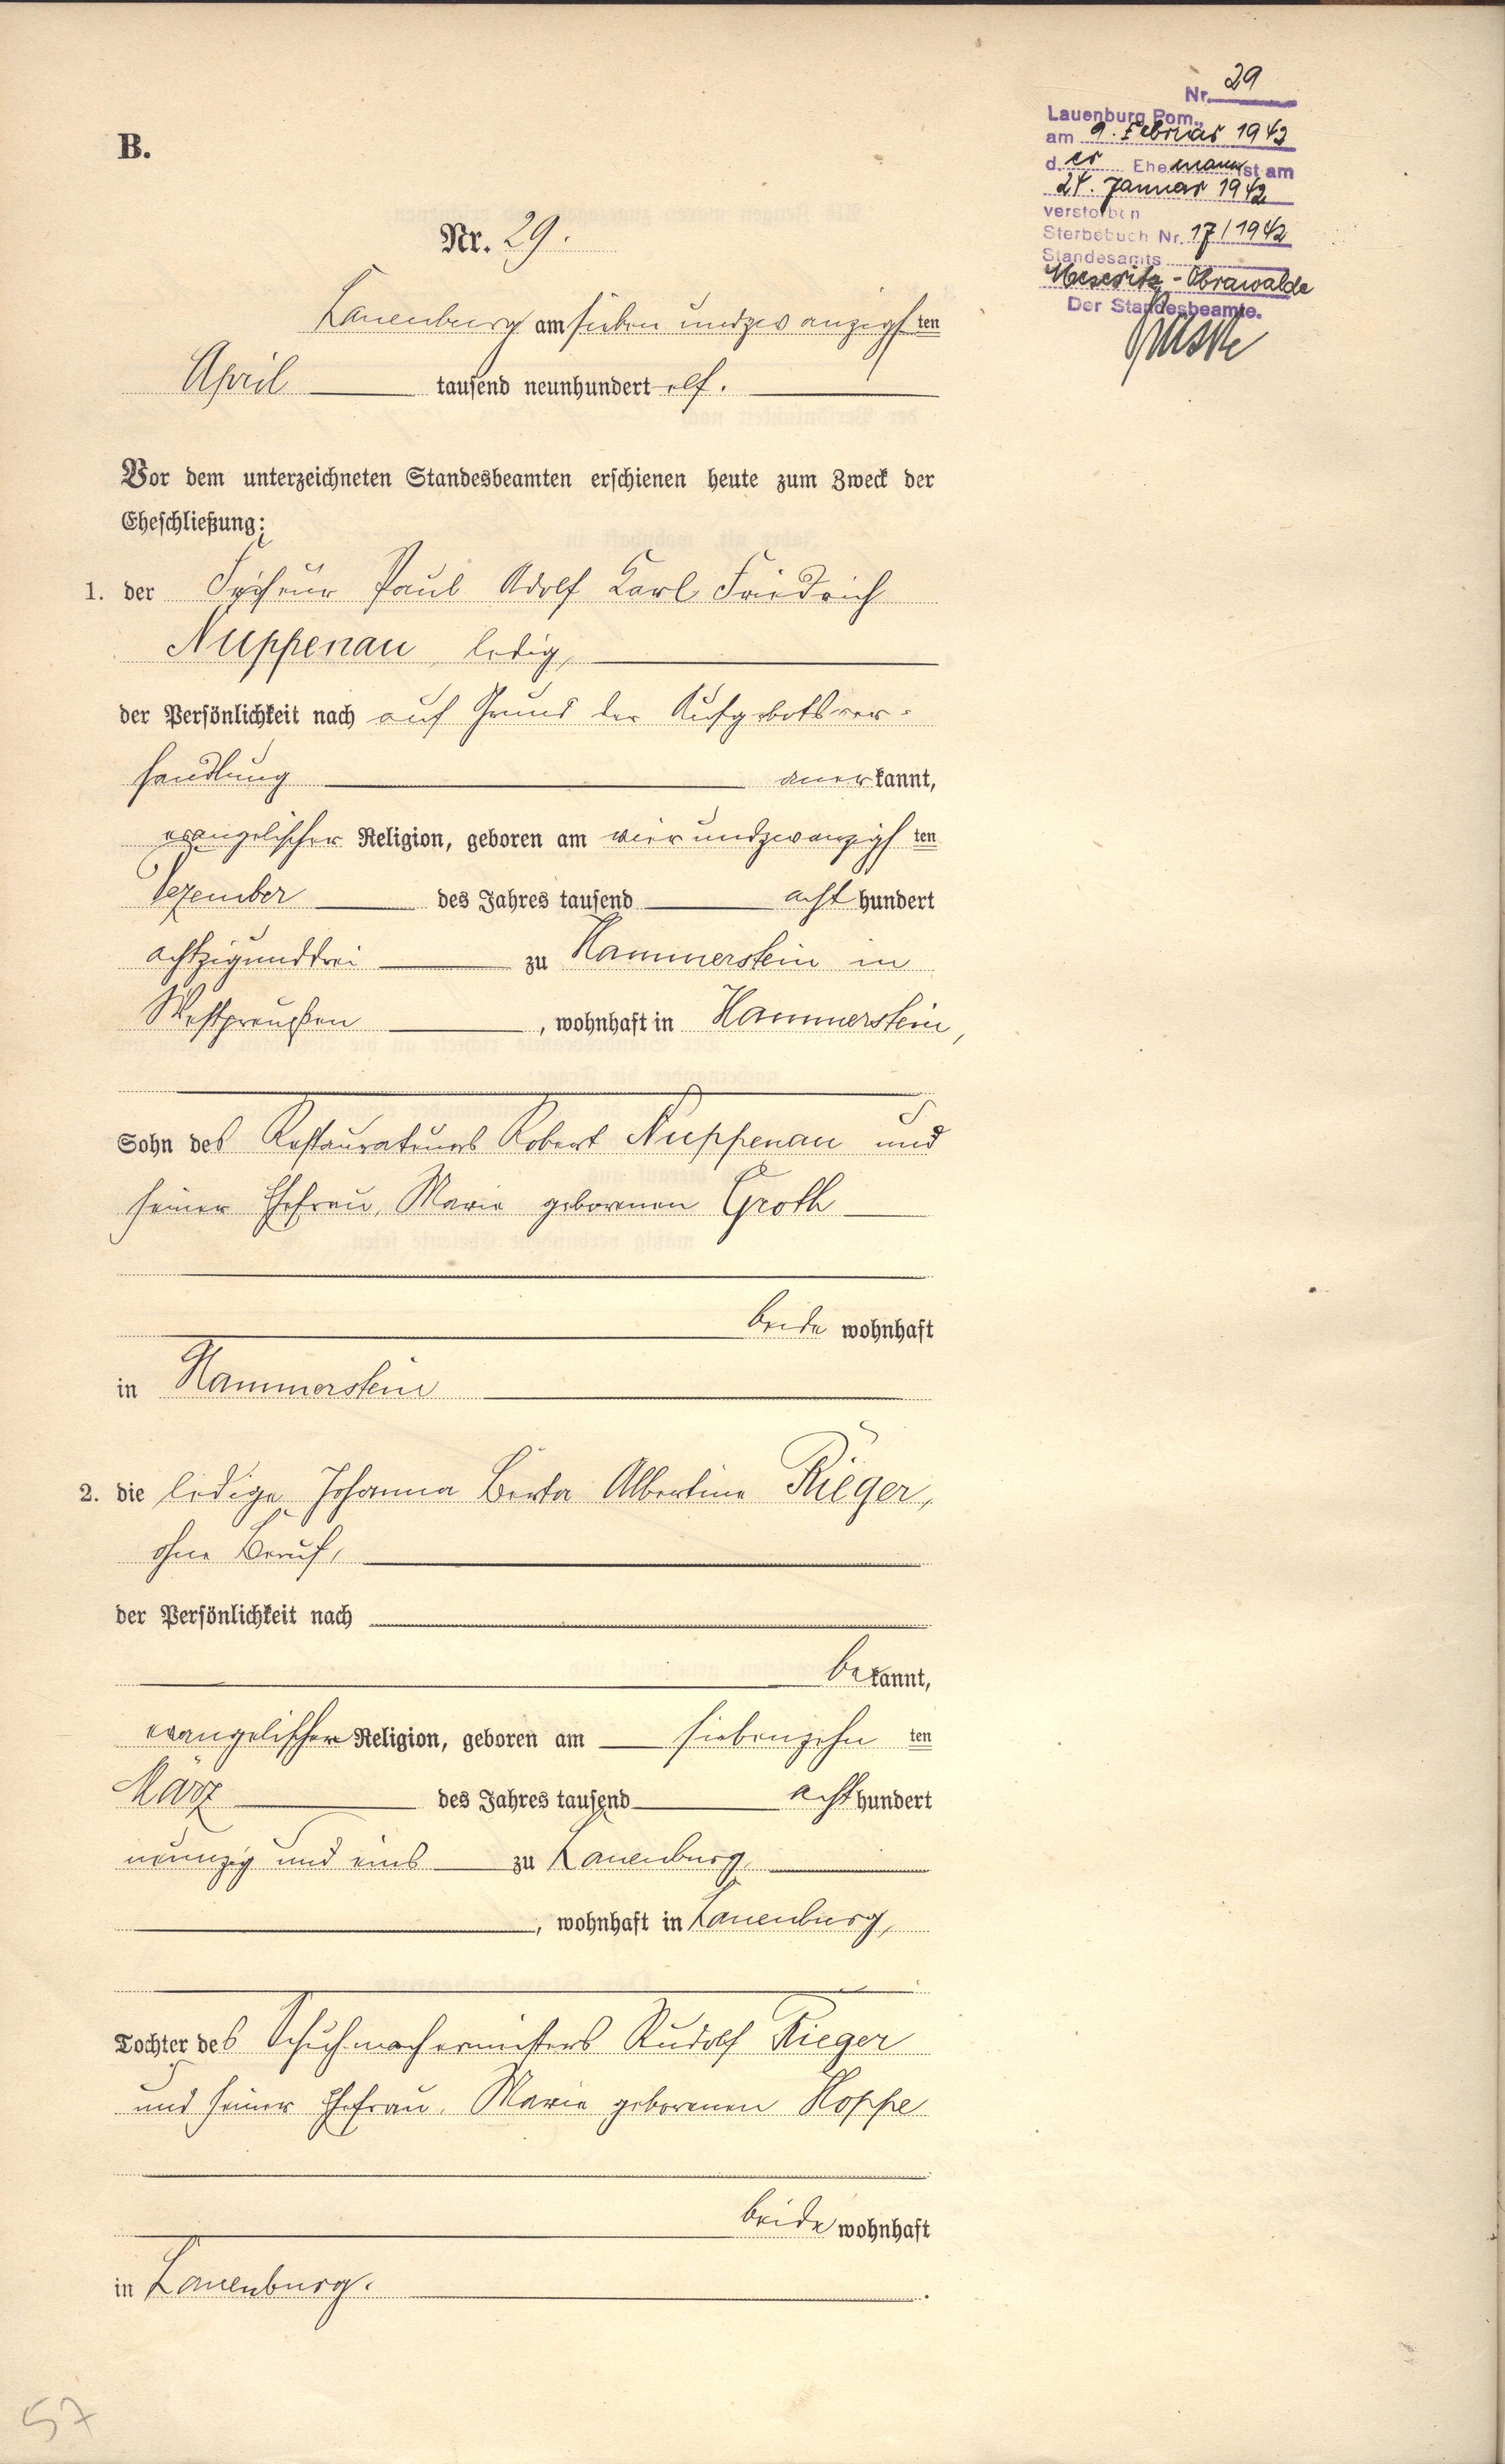 B.
Nr. 29.
Lauenburg am sieben und zwanzigsten
April tausend neunhundert elf.
Vor dem unterzeichneten Standesbeamten erschienen heute zum Zweck der
Eheschließung:
1. der Friseur Paul Adolf Karl Friedrich
Nuppenau, ledig,
der Persönlichkeit nach auf Grund der Aufgebotsver-
handlung anerkannt,
evangelischer Religion, geboren am vier und zwanzigsten
Dezember des Jahres tausend acht hundert
achtzig und drei zu Hammerstein in
Westpreußen, wohnhaft in Hammerstein,
Sohn des Restaurateurs Robert Nuppenau und
seiner Ehefrau, Marie geborenen Groth
beide wohnhaft
in Hammerstein
2. die ledige Johanna Berta Albertine Rieger,
ohne Beruf,
der Persönlichkeit nach
bekannt,
evangelischer Religion, geboren am siebenzehnten
März des Jahres tausend acht hundert
neunzig und eins zu Lauenburg,
, wohnhaft in Lauenburg,
Tochter des Schuhmachermeisters Rudolf Rieger
und seiner Ehefrau, Marie geborenen Hoppe
beide wohnhaft
in Lauenburg.
57
Nr. 29
Lauenburg Pom.,
am 9. Februar 1942
d. er Ehemann ist am
24. Januar 1942
verstorben
Sterbebuch Nr. 17/1942
Standesamts
Meseritz-Obrawalde
Der Standesbeamte.